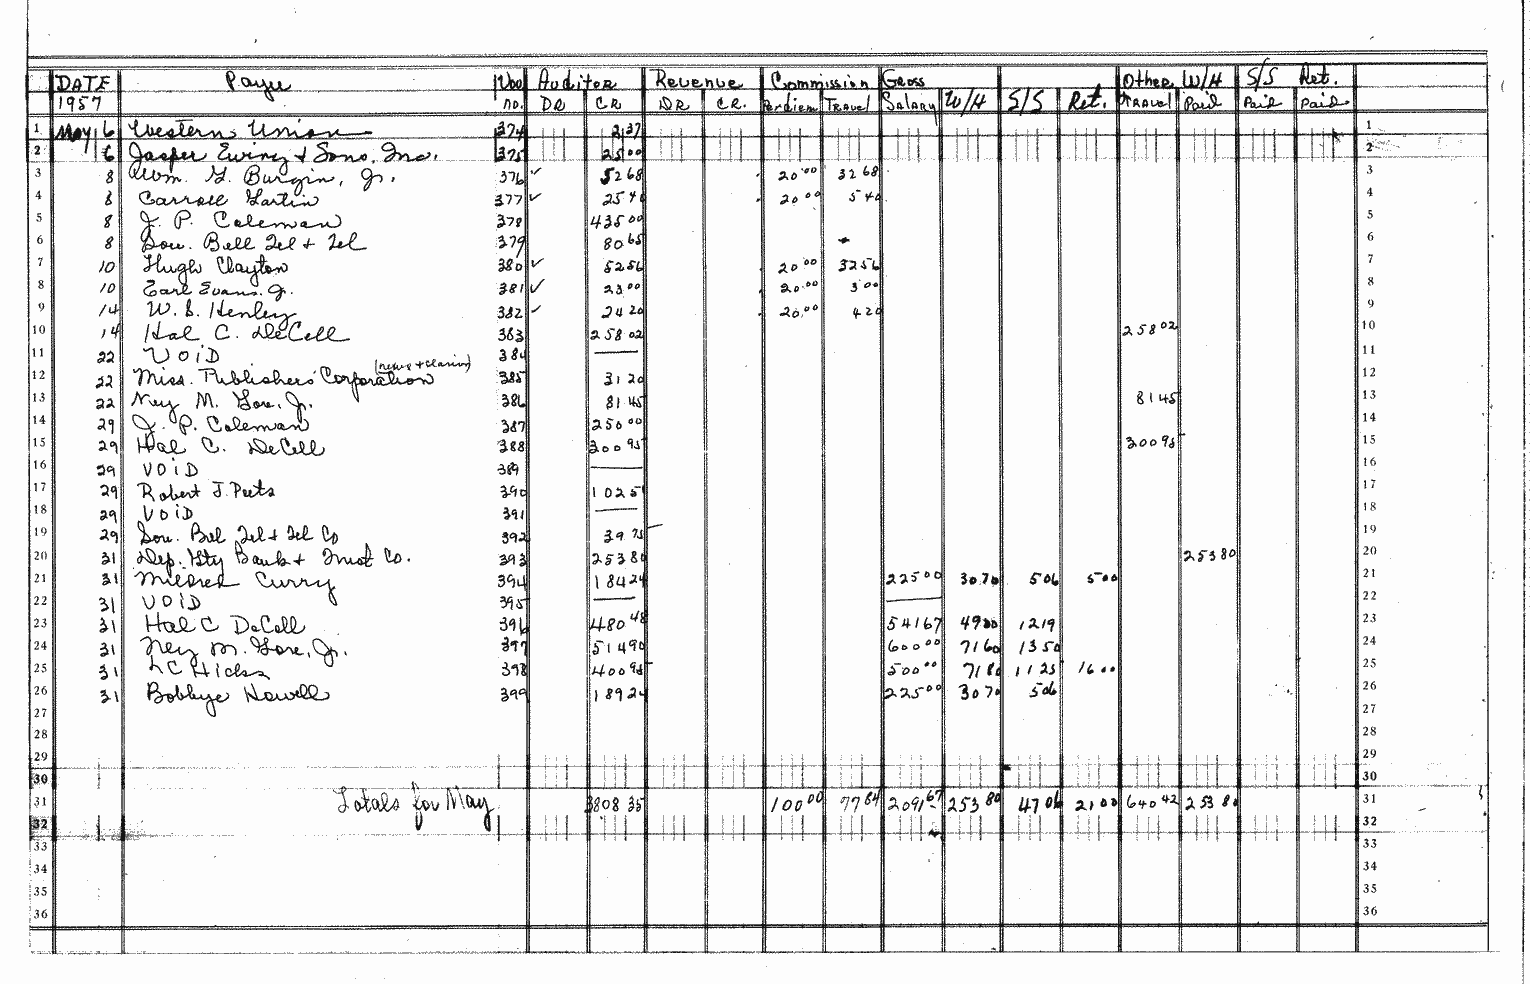 DATE Payee Vou Auditor Revenue Commission Gross Other W/H S/S Ret.
1957 no. DR CR DR CR. Perdiem Travel Salary W/H S/S Ret. Travel Paid Paid Paid
1 May 6 Western Union 374 2 37 1
2 6 Jasper Ewing & Sons, Inc. 375 25 00 2
3 8 Wm. G. Burgin, Jr. 376 ✓ 52 68 20 00 32 68 3
4 8 Carroll Gartin 377 ✓ 25 40 20 00 5 40 4
5 8 J. P. Coleman 378 435 00 5
6 8 Sou. Bell Tel & Tel 379 80 65 6
7 10 Hugh Clayton 380 ✓ 52 56 20 00 32 56 7
8 10 Earl Evans Jr. 381 ✓ 23 00 20 00 3 00 8
9 14 W. S. Henley 382 ✓ 24 20 20 00 4 20 9
10 14 Hal C. DeCell 383 258 02 258 02 10
11 22 VOID 384 —— 11
12 22 Miss. Publishers Corporation (news & clarion) 385 31 20 12
13 22 Ney M. Gore, Jr. 386 81 45 81 45 13
14 29 J. P. Coleman 387 250 00 14
15 29 Hal C. DeCell 388 300 95 300 95 15
16 29 VOID 389 —— 16
17 29 Robert J. Peets 390 10 25 17
18 29 VOID 391 —— 18
19 29 Sou. Bel Tel & Tel Co 392 39 75 19
20 31 Dep. Gty Bank & Trust Co. 393 253 80 253 80 20
21 31 Mildred Curry 394 184 24 225 00 30 70 5 06 5 00 21
22 31 VOID 395 —— —— 22
23 31 Hal C DeCell 396 480 48 541 67 49 00 12 19 23
24 31 Ney M. Gore, Jr. 397 514 90 600 00 71 60 13 50 24
25 31 L C Hicks 398 400 95 500 00 71 80 11 25 16 00 25
26 31 Bobbye Howell 399 189 24 225 00 30 70 5 06 26
27 27
28 28
29 29
30 30
31 Totals for May 3808 35 100 00 77 84 2091 67 253 80 47 06 21 00 640 42 253 80 31
32 32
33 33
34 34
35 35
36 36